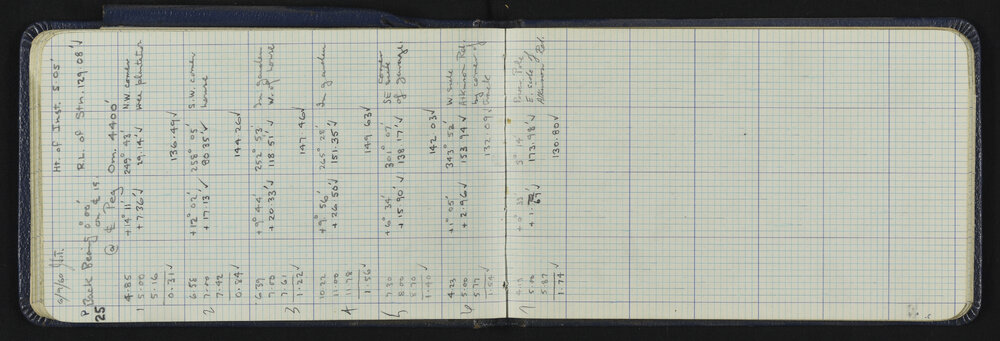 6/9/60 Ht. of Inst. 5.05'
P Back Bearing 0° 00' R.L. of Stn. 129.08'✓
on ₵ 15.
25 @ ₵ Peg Om. 4400'
4.85 +14° 11' N.W. corner
1 5.00 +7.36'✓ 29.14'✓ tree plantation
5.16
0.31✓ 136.49✓
6.58 +12° 02' 258° 05' S.W. corner
2 7.00 +17.13✓ 80.35✓ house
7.42
0.84✓ 144.26✓
6.39 +9° 44' 252° 53' In garden
3 7.00 +20.33'✓ 118.51'✓ W. of house
7.61
1.22✓ 147.46✓
10.22 +9° 56' 265° 28' In garden
4 11.00 +26.50'✓ 151.35'✓
11.78
1.56✓ 149.63✓
7.30 +6° 34' 301° 07' SE corner
5 8.00 +15.90'✓ 138.17'✓ of garage.
8.70
1.40✓ 142.03✓
4.23 +1° 05' 343° 52' W. side
6 5.00 +2.96✓ 153.94✓ Atkinson Rd.
5.77 by corner of
1.54✓ 132.09✓ track
+0° 33' 5° 14' Power Pole
7 5.00 173.98'✓ E. side of
5.87 Atkinson Rd.
1.74✓ 130.80✓